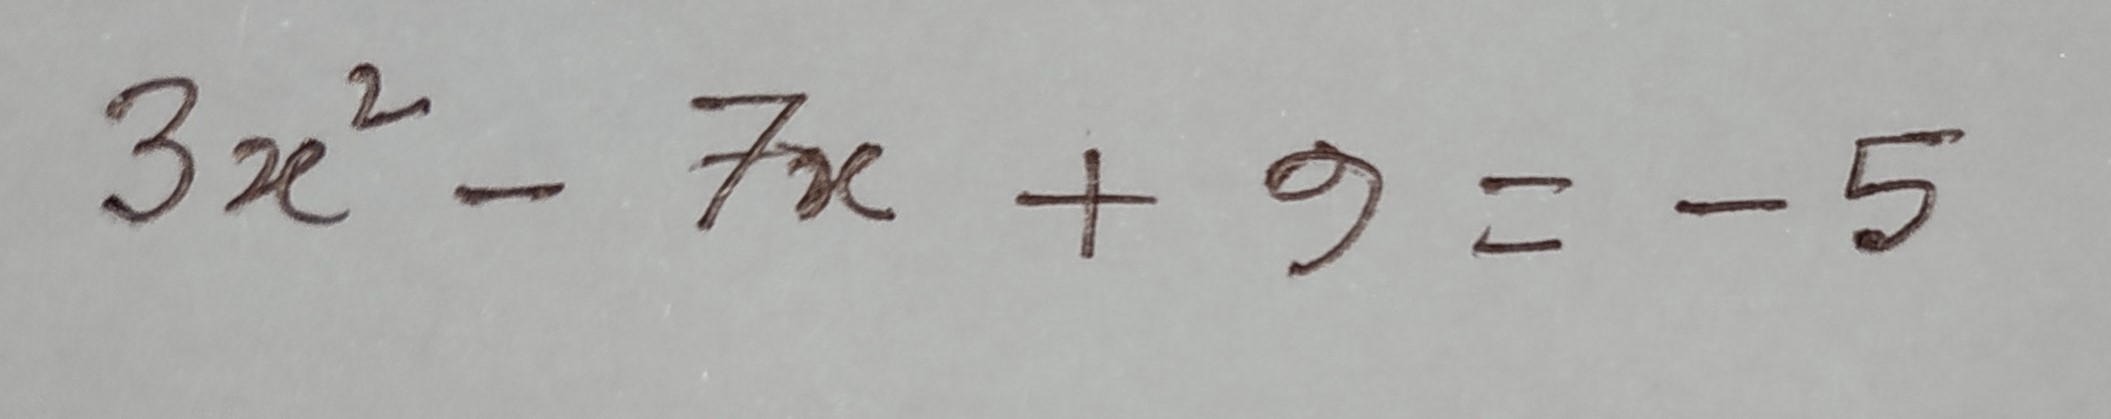 3x² - 7x + 9 = - 5